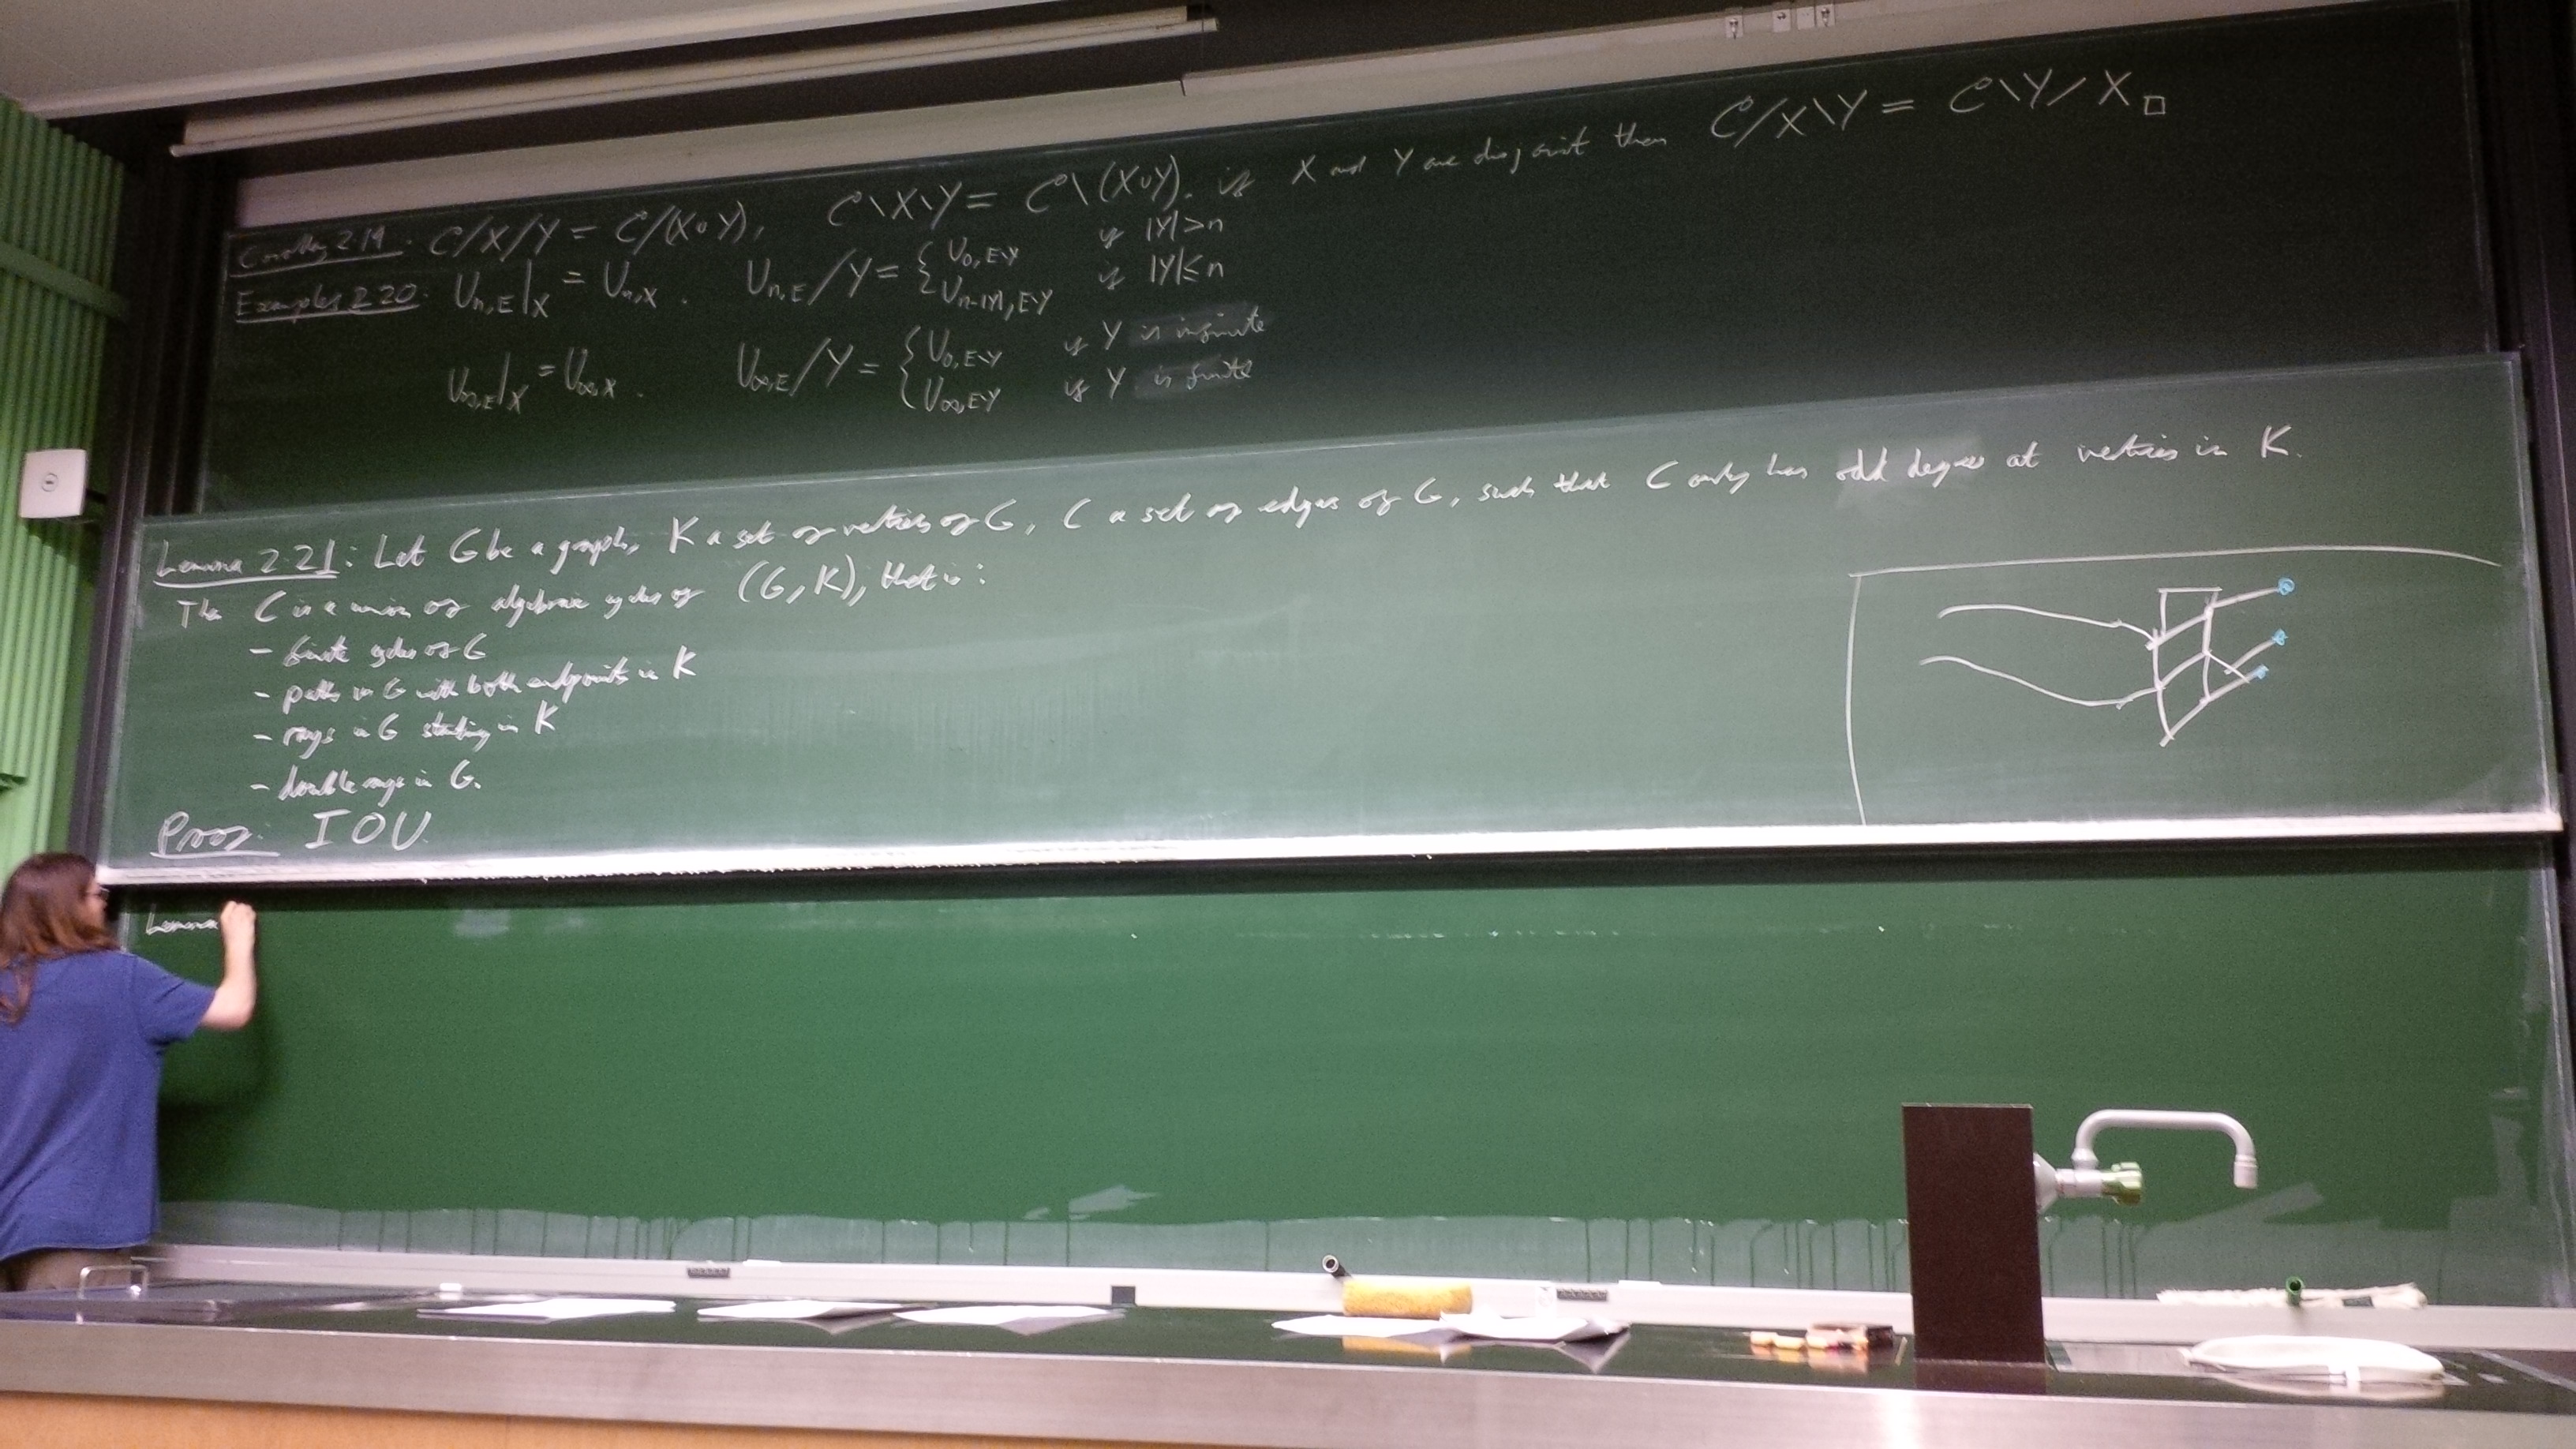 Corollary 2.19: C/X/Y = C/(X∪Y), C\X\Y = C\(X∪Y). if X and Y are disjoint then C/X\Y = C\Y/X □
Examples 2.20: U_{n,E}|_X = U_{n,X}. U_{n,E}/Y = { U_{0,E\Y} if |Y|>n
U_{n-|Y|,E\Y} if |Y|≤n
U_{∞,E}|_X = U_{∞,X}. U_{∞,E}/Y = { U_{0,E\Y} if Y is infinite
U_{∞,E\Y} if Y is finite
Lemma 2.21: Let G be a graph, K a set of vertices of G, C a set of edges of G, such that C only has odd degree at vertices in K.
The C is a union of algebraic cycles of (G,K), that is:
- finite cycles of G
- paths in G with both endpoints in K
- rays in G starting in K
- double rays in G.
Proof: IOU.
Lemma